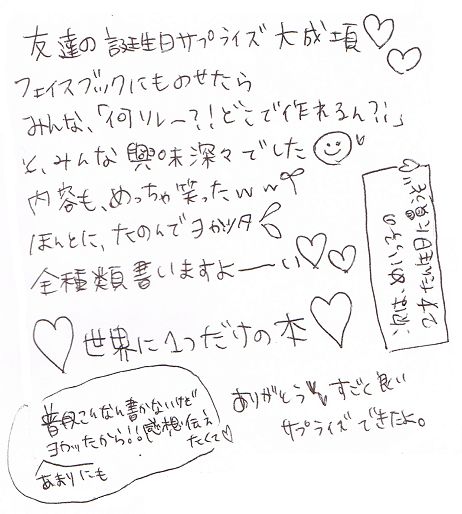 友達の誕生日サプライズ大成項♡♡
フェイスブックにものせたら
みんな、「何ソレー?!どこで作れるん?!」
と、みんな興味深々でした
内容も、めっちゃ笑ったww
ほんとに、たのんでヨカッタ
全種類書いますよーーい♡♡
♡世界に1つだけの本♡
次は、めいっこの
2才たん生日に買うぞ♡
ありがとう すごく良い
サプライズできたよ。
普段こんなん書かないけど
ヨカッたから!!感想伝え
たくて♡
あまりにも